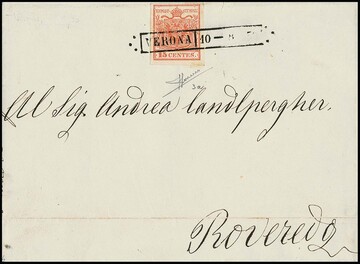 VERONA 10 –
15 CENTES.
Al Sig. Andrea Landlpergher.
Roveredo